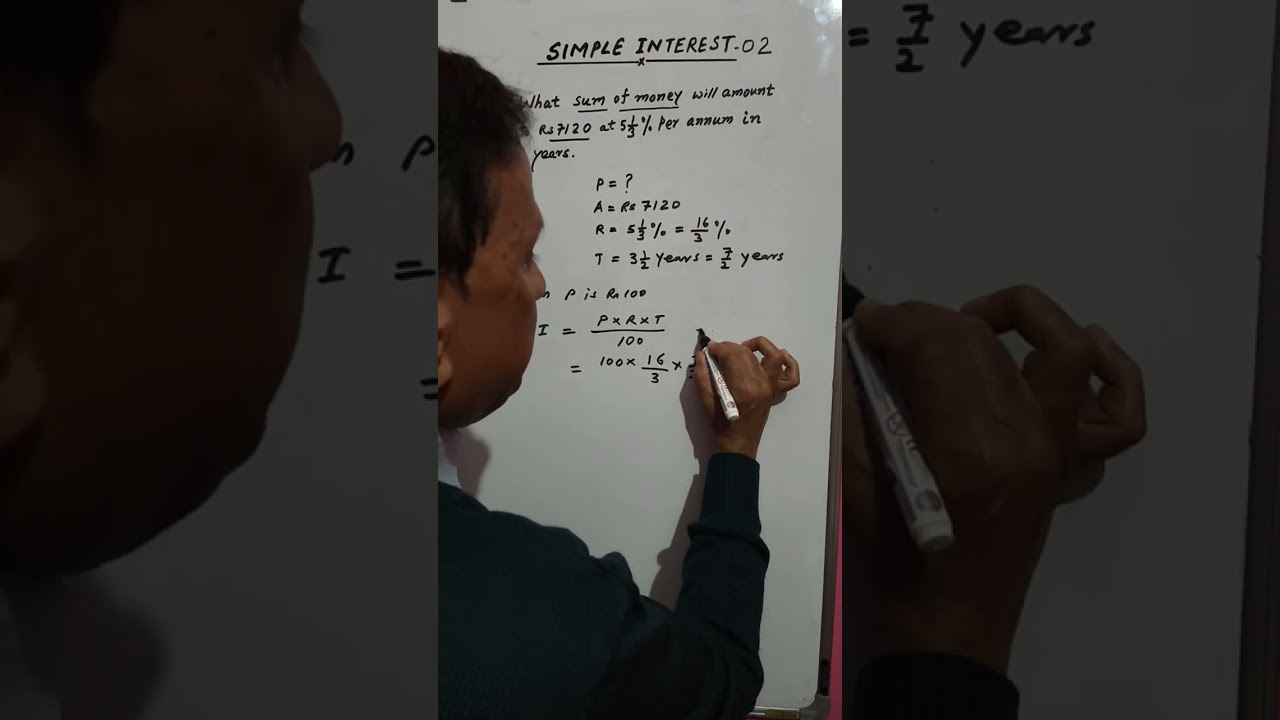 SIMPLE INTEREST-02
What sum of money will amount
Rs 7120 at 5 1/3 % Per annum in
years.
P = ?
A = Rs 7120
R = 5 1/3 % = 16/3 %
T = 3 1/2 years = 7/2 years
P is Rs 100
I = P × R × T / 100
= 100 × 16/3 ×
= 7/2 years
P
I =